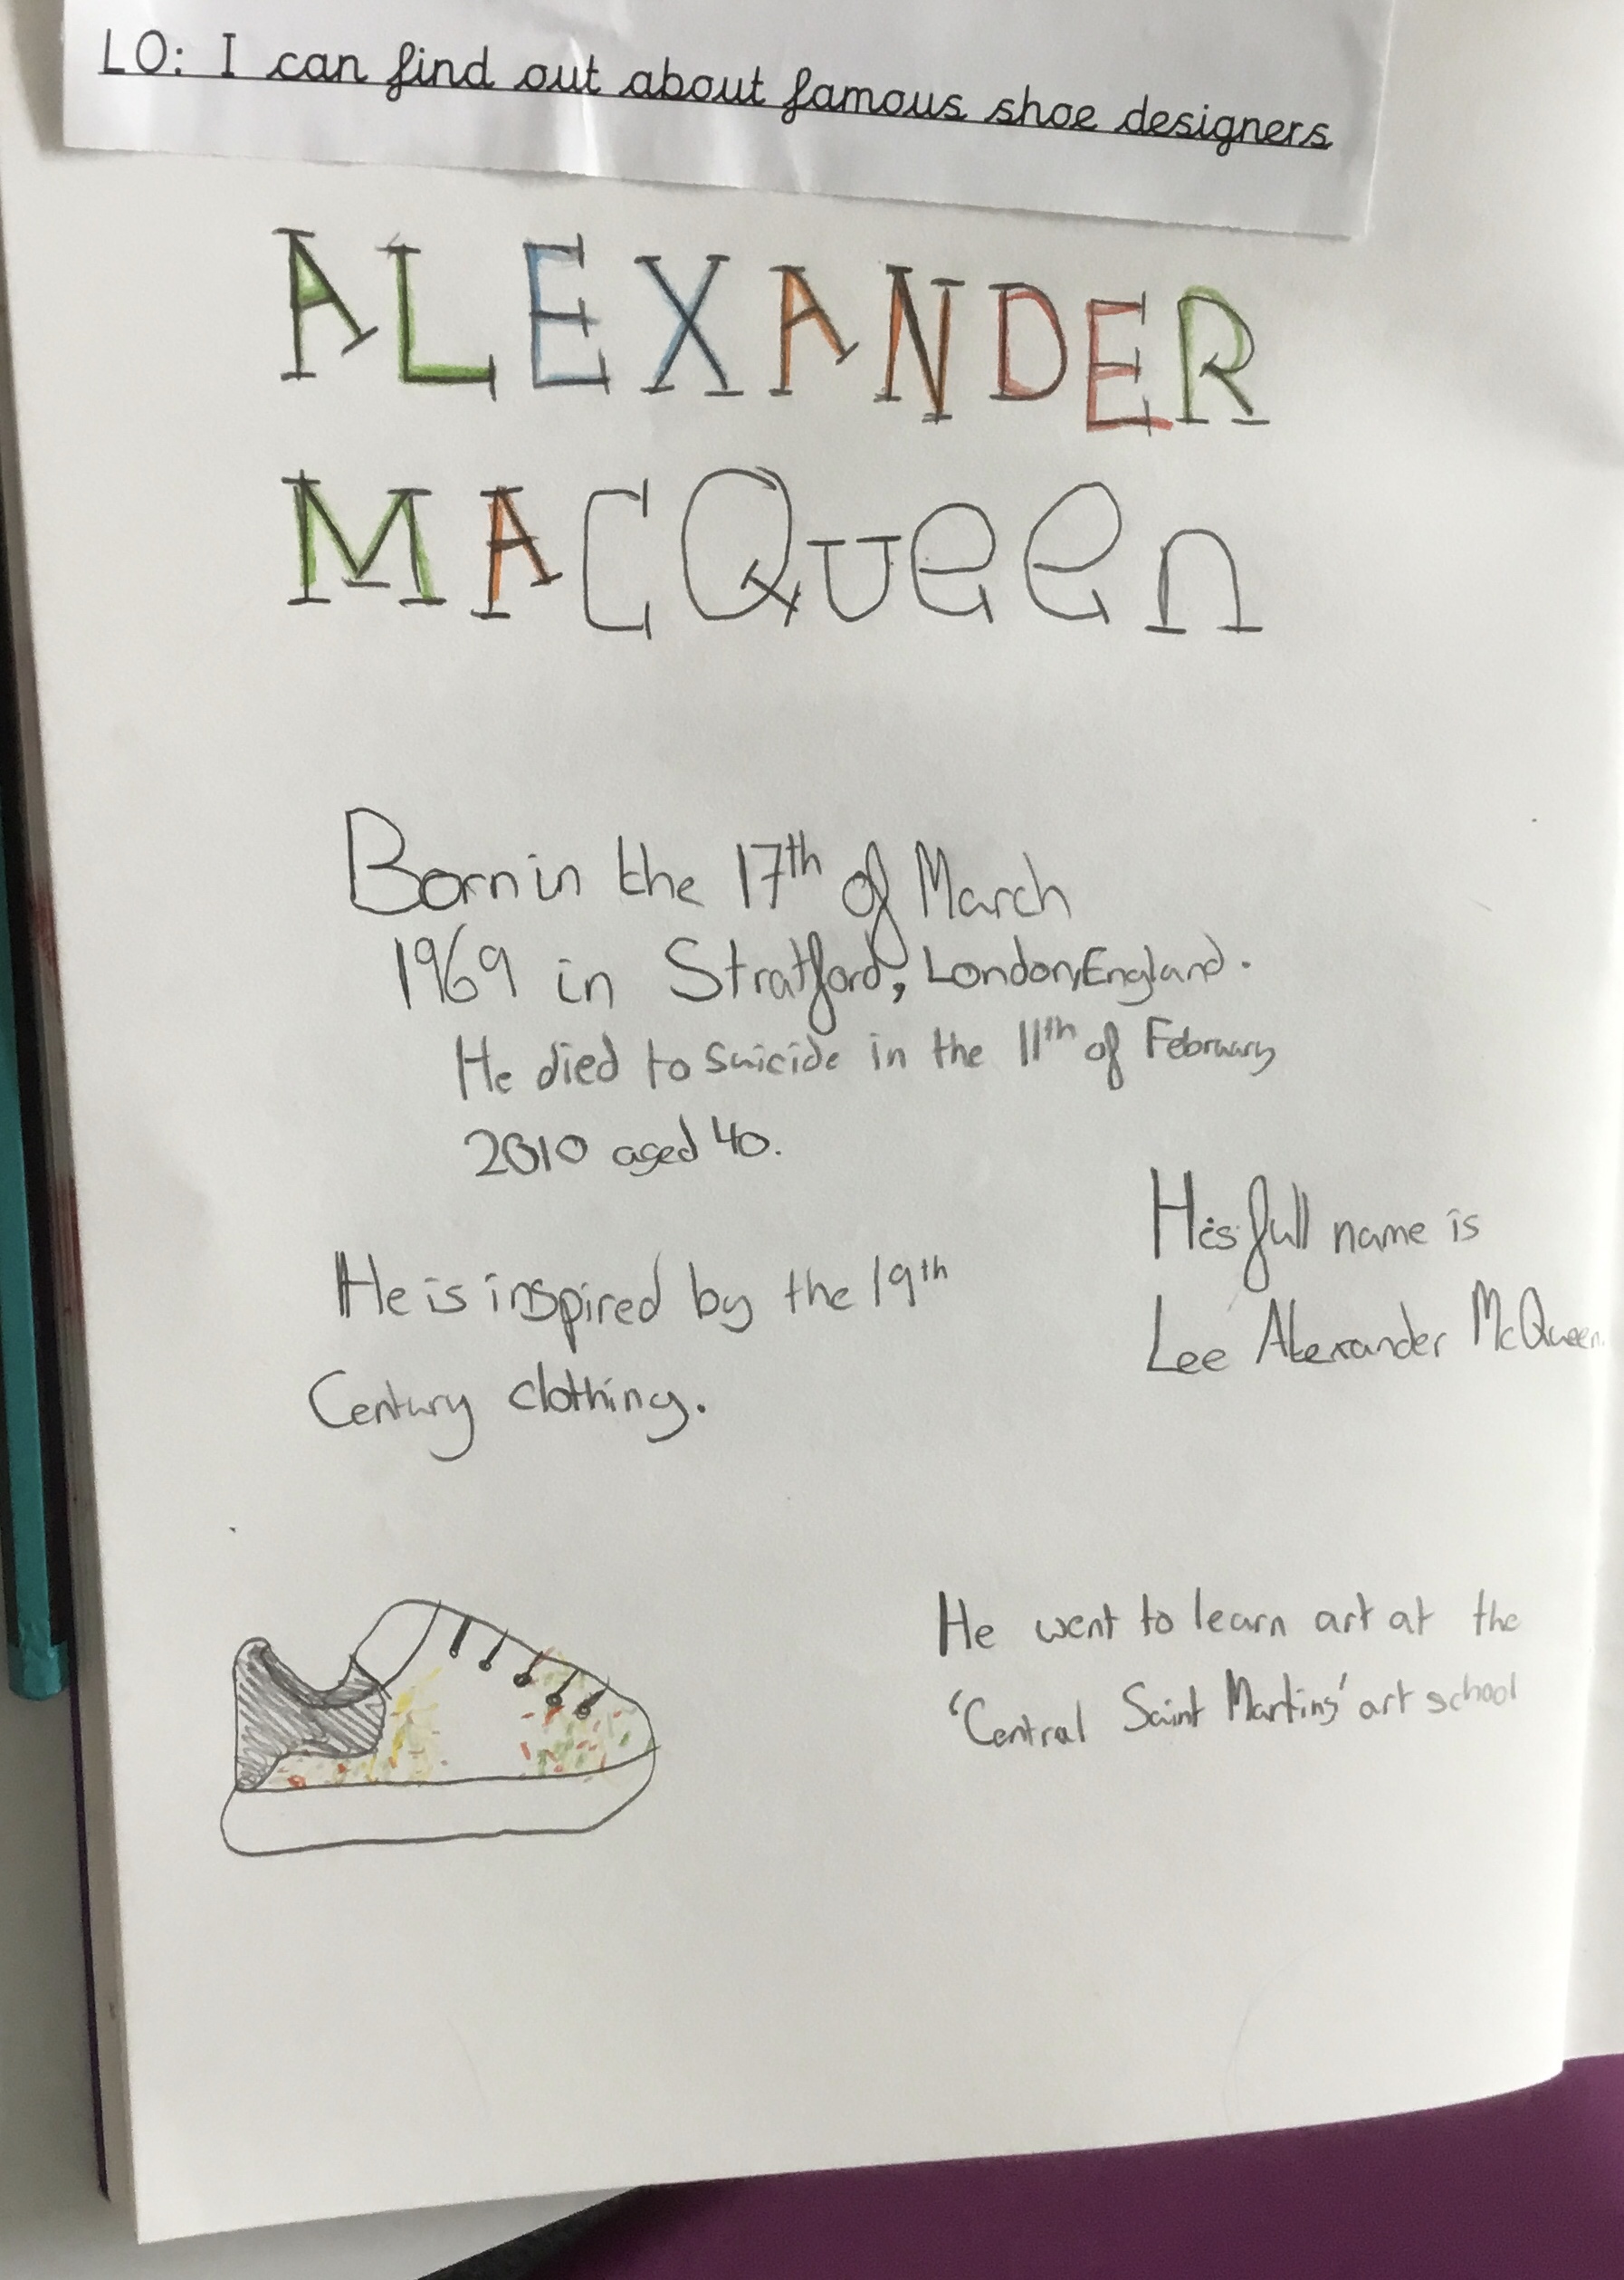 LO: I can find out about famous shoe designers
ALEXANDER
MACQueen
Born in the 17th of March
1969 in Stratford, London, England.
He died to suicide in the 11th of February
2010 aged 40.
His full name is
Lee Alexander McQueen.
He is inspired by the 19th
Century clothing.
He went to learn art at the
'Central Saint Martins' art school